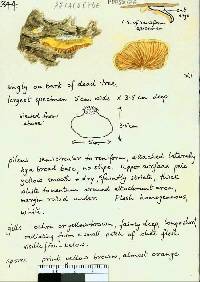 344
cut edge
Singly on bark of dead tree,
largest specimen 5cm wide x 3.5cm deep
viewed from above
3.5cm
5cm
pileus semicircular to reniform, attached laterally
by a broad base, no stipe. Upper surface pale
yellow smooth & dry, faintly striate, thick
white tomentum around attachment area,
margin rolled under. Flesh homogeneous,
white.
gills ochre or yellow-brown, fairly deep,
radiating from a small patch of white flesh
visible from below.
spores print yellow brown, almost orange